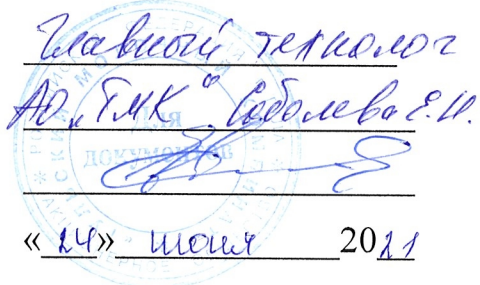 Главный технолог
АО "ТМК" Соболева Е.Н.
для
документов
« 24 » июня 2021